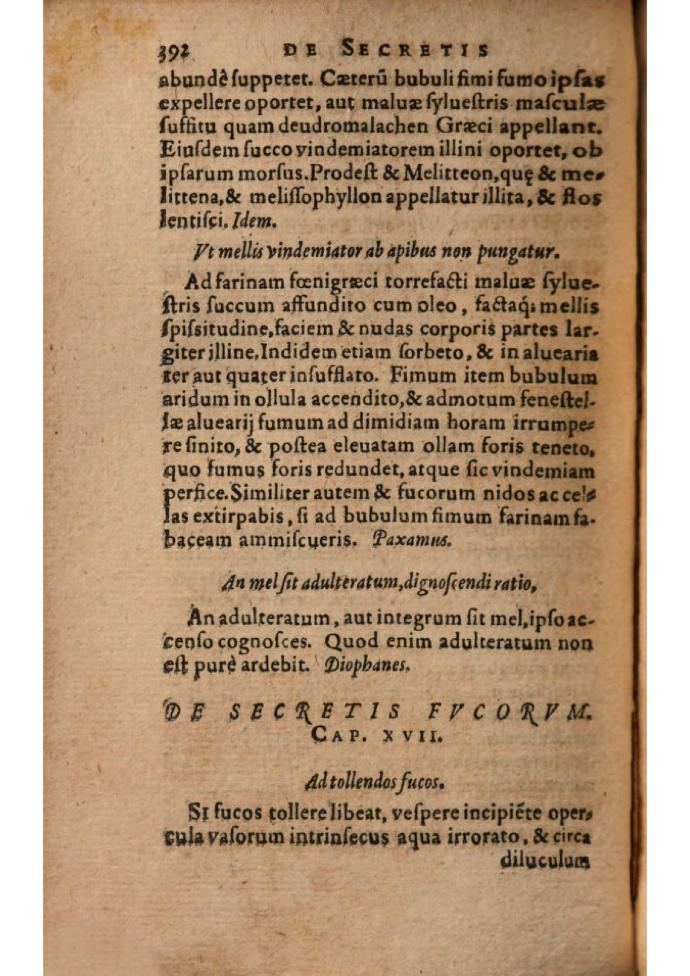 392 DE SECRETIS
abundê ſuppetet. Cæterũ bubuli fimi fumo ipſas
expellere oportet, aut maluæ ſylueſtris maſculæ
ſuffitu quam deudromalachen Græci appellant.
Eiuſdem ſucco vindemiatorem illini oportet, ob
ipſarum morſus. Prodeſt & Melitteon, quę & me-
littena, & meliſſophyllon appellatur illita, & flos
lentiſci. Idem.
Vt mellis vindemiator ab apibus non pungatur.
Ad farinam fœnigræci torrefacti maluæ ſylue-
ſtris ſuccum affundito cum oleo, factaq; mellis
ſpiſsitudine, faciem & nudas corporis partes lar-
giter illine. Indidem etiam ſorbeto, & in aluearia
ter aut quater inſufflato. Fimum item bubulum
aridum in ollula accendito, & admotum feneſtel-
læ aluearij fumum ad dimidiam horam irrumpe-
re ſinito, & poſtea eleuatam ollam foris teneto,
quo fumus foris redundet, atque ſic vindemiam
perfice. Similiter autem & fucorum nidos ac cel-
las extirpabis, ſi ad bubulum fimum farinam fa-
baceam ammiſcueris. Paxamus.
An mel ſit adulteratum, dignoſcendi ratio,
An adulteratum, aut integrum ſit mel, ipſo ac-
cenſo cognoſces. Quod enim adulteratum non
eſt purè ardebit. Diophanes.
DE SECRETIS FVCORVM.
CAP. XVII.
Ad tollendos fucos.
Si fucos tollere libeat, veſpere incipiẽte oper-
cula vaſorum intrinſecus aqua irrorato, & circa
diluculum